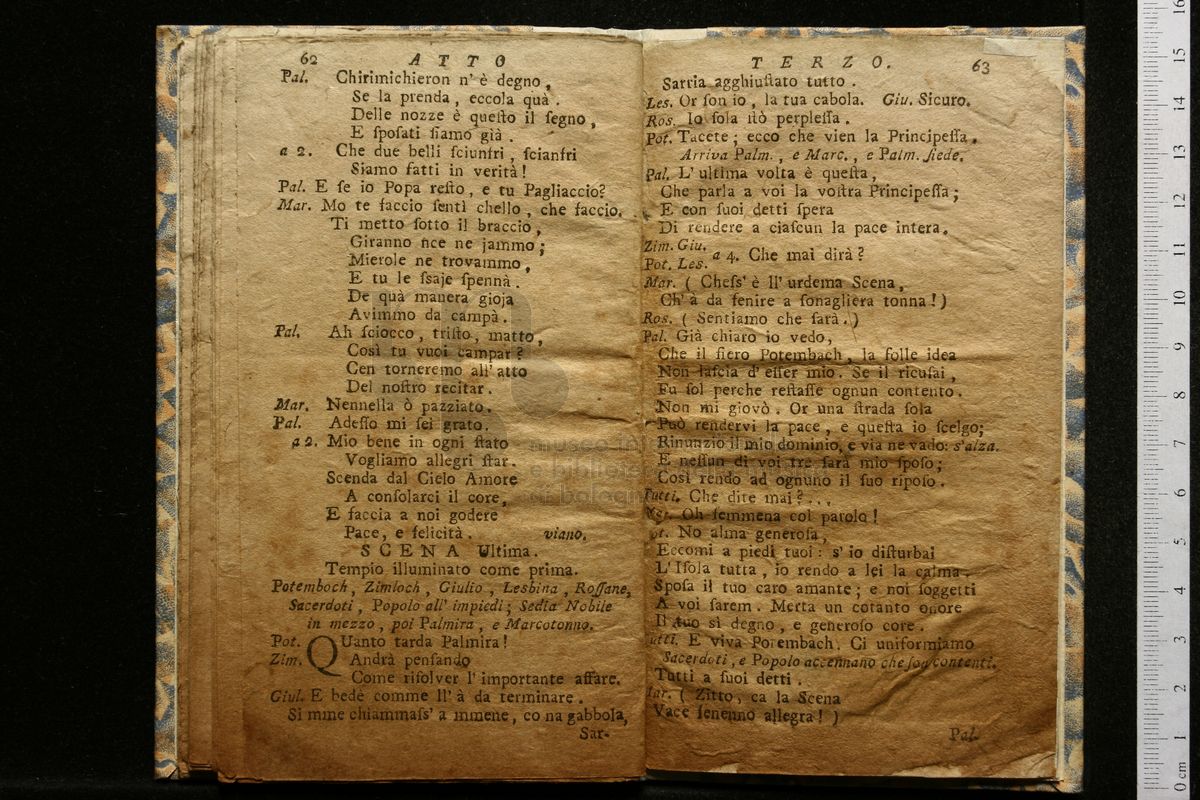 62 ATTO
Pal. Chirimichieron n' è degno,
Se la prenda, eccola quà.
Delle nozze è queſto il ſegno,
E ſpoſati ſiamo già.
a 2. Che due belli ſciunſri, ſcianſri
Siamo fatti in verità!
Pal. E ſe io Popa reſto, e tu Pagliaccio?
Mar. Mo te faccio ſentì chello, che faccio.
Ti metto ſotto il braccio,
Giranno nce ne jammo;
Mierole ne trovammo,
E tu le ſsaje ſpennà.
De quà manera gioja
Avimmo da campà.
Pal. Ah ſciocco, triſto, matto,
Così tu vuoi campar?
Cen torneremo all' atto
Del noſtro recitar.
Mar. Nennella ò pazziato.
Pal. Adeſſo mi ſei grato.
a 2. Mio bene in ogni ſtato
Vogliamo allegri ſtar.
Scenda dal Cielo Amore
A conſolarci il core,
E faccia a noi godere
Pace, e felicità. viano.
SCENA Ultima.
Tempio illuminato come prima.
Potemboch, Zimloch, Giulio, Lesbina, Roſſane,
Sacerdoti, Popolo all' impiedi; Sedia Nobile
in mezzo, poi Palmira, e Marcotonno.
Pot. QUanto tarda Palmira!
Zim. Andrà penſando
Come riſolver l' importante affare.
Giul. E bedè comme ll' à da terminare.
Si mme chiammaſs' a mmene, co na gabbola,
Sar-
TERZO. 63
Sarria agghiuſtato tutto.
Les. Or ſon io, la tua cabola. Giu. Sicuro.
Ros. Io ſola ſtò perpleſſa.
Pot. Tacete; ecco che vien la Principeſſa.
Arriva Palm., e Marc., e Palm. ſiede.
Pal. L' ultima volta è queſta,
Che parla a voi la voſtra Principeſſa;
E con ſuoi detti ſpera
Di rendere a ciaſcun la pace intera.
Zim. Giu.
Pot. Les. a 4. Che mai dirà?
Mar. ( Cheſs' è ll' urdema Scena,
Ch' à da fenire a ſonagliera tonna!)
Ros. ( Sentiamo che ſarà.)
Pal. Già chiaro io vedo,
Che il fiero Potembach, la folle idea
Non laſcia d' eſſer mio. Se il ricuſai,
Fu ſol perche reſtaſſe ognun contento.
Non mi giovò. Or una ſtrada ſola
Può rendervi la pace, e queſta io ſcelgo;
Rinunzio il mio dominio, e via ne vado: s'alza.
E neſſun di voi tre ſarà mio ſpoſo;
Così rendo ad ognuno il ſuo ripoſo.
Tutti. Che dite mai?...
Mar. Oh femmena col parolo!
ot. No alma generoſa,
Eccomi a piedi tuoi: s' io diſturbai
L' Iſola tutta, io rendo a lei la calma.
Spoſa il tuo caro amante; e noi ſoggetti
A voi ſarem. Merta un cotanto onore
Il tuo sì degno, e generoſo core.
utti. E viva Potembach. Ci uniformiamo
Sacerdoti, e Popolo accennano che ſon contenti.
Tutti a ſuoi detti.
Mar. ( Zitto, ca la Scena
Vace ſenenno allegra! )
Pal.